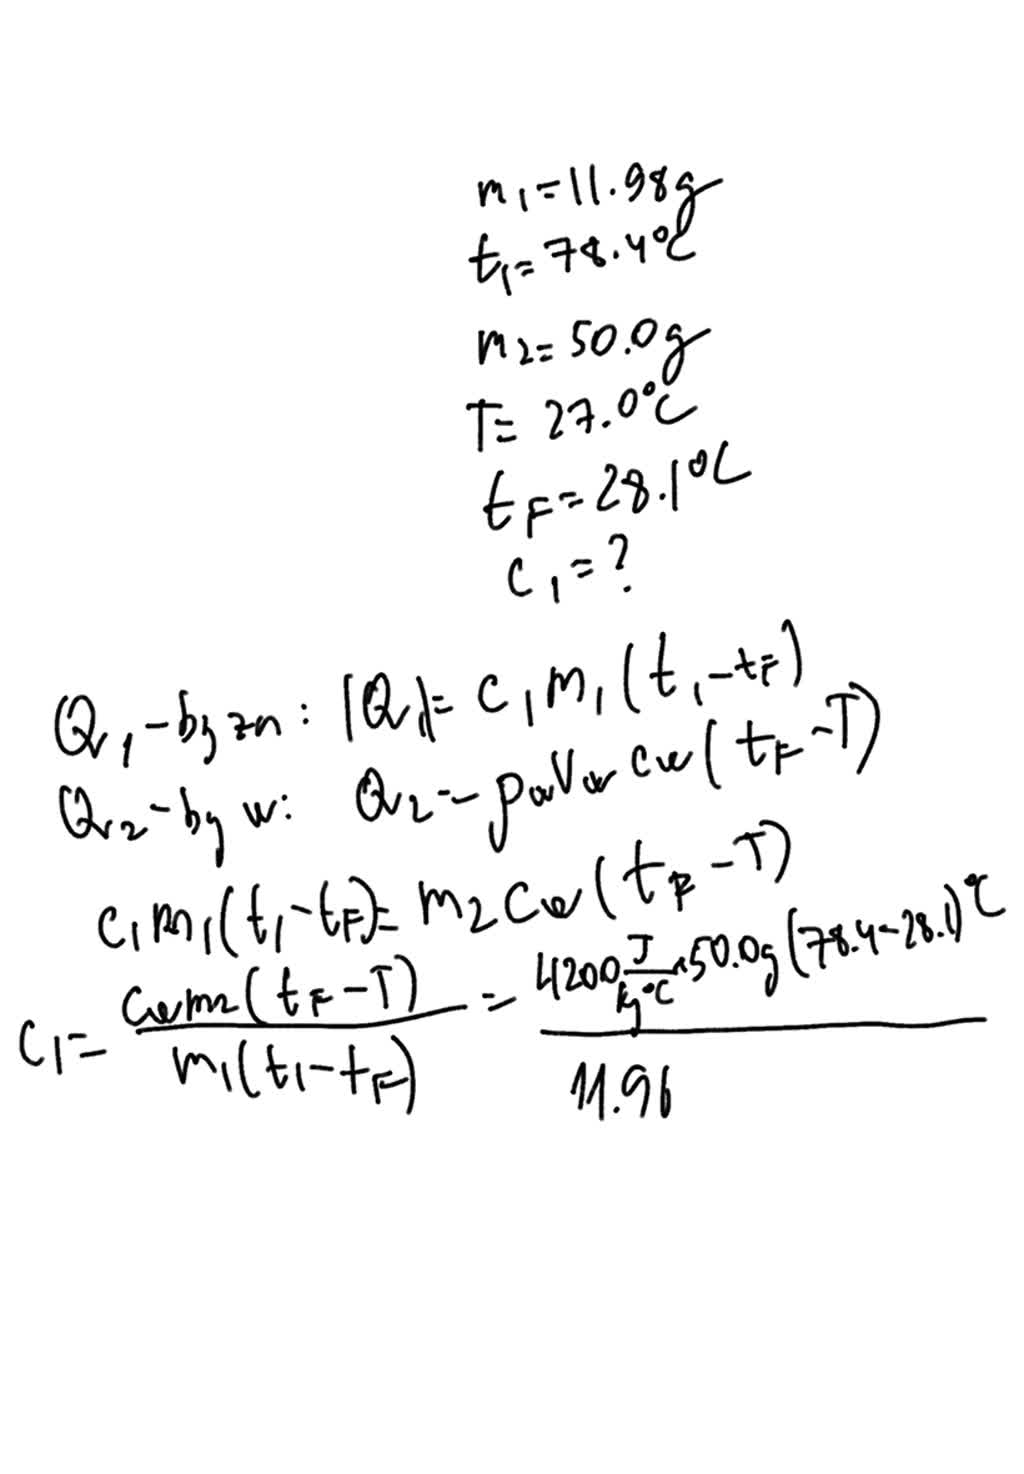 m₁=11.98g
t₁=78.4°C
m₂=50.0g
T=27.0°C
t_F=28.1°C
c₁=?
Q₁-by zn: |Q₁|=c₁m₁(t₁-t_F)
Q₂-by w: Q₂=ρ_wV_wc_w(t_F-T)
c₁m₁(t₁-t_F)=m₂c_w(t_F-T)
c₁=\frac{c_wm₂(t_F-T)}{m₁(t₁-t_F)}=\frac{4200\frac{J}{kg°C}×50.0g(78.4-28.1)°C}{11.96}